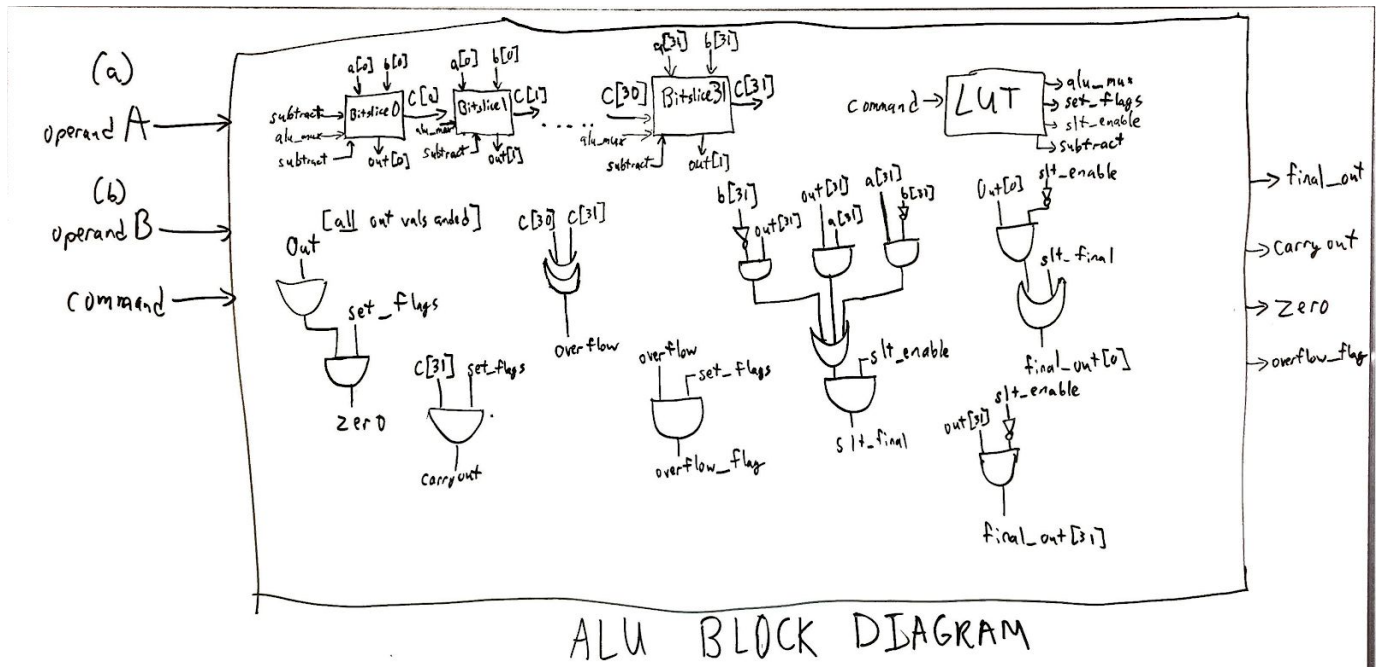 (a)
operand A
(b)
operand B
command
a[0] b[0]
subtract
alu_mux
subtract
Bitslice 0
C[0]
out[0]
a[0] b[0]
alu_mux
subtract
Bitslice 1
C[1]
out[1]
.....
a[31] b[31]
C[30]
alu_mux
subtract
Bitslice 31
C[31]
out[1]
command
LUT
alu_mux
set_flags
slt_enable
subtract
[all out vals anded]
Out
set_flags
zero
C[31] set_flags
carryout
C[30] C[31]
overflow
overflow
set_flags
overflow_flag
b[31] out[31] out[31] a[31] a[31] b[31]
slt_enable
slt_final
Out[0] slt_enable
slt_final
final_out[0]
slt_enable
out[31]
final_out[31]
final_out
carryout
zero
overflow_flag
ALU BLOCK DIAGRAM